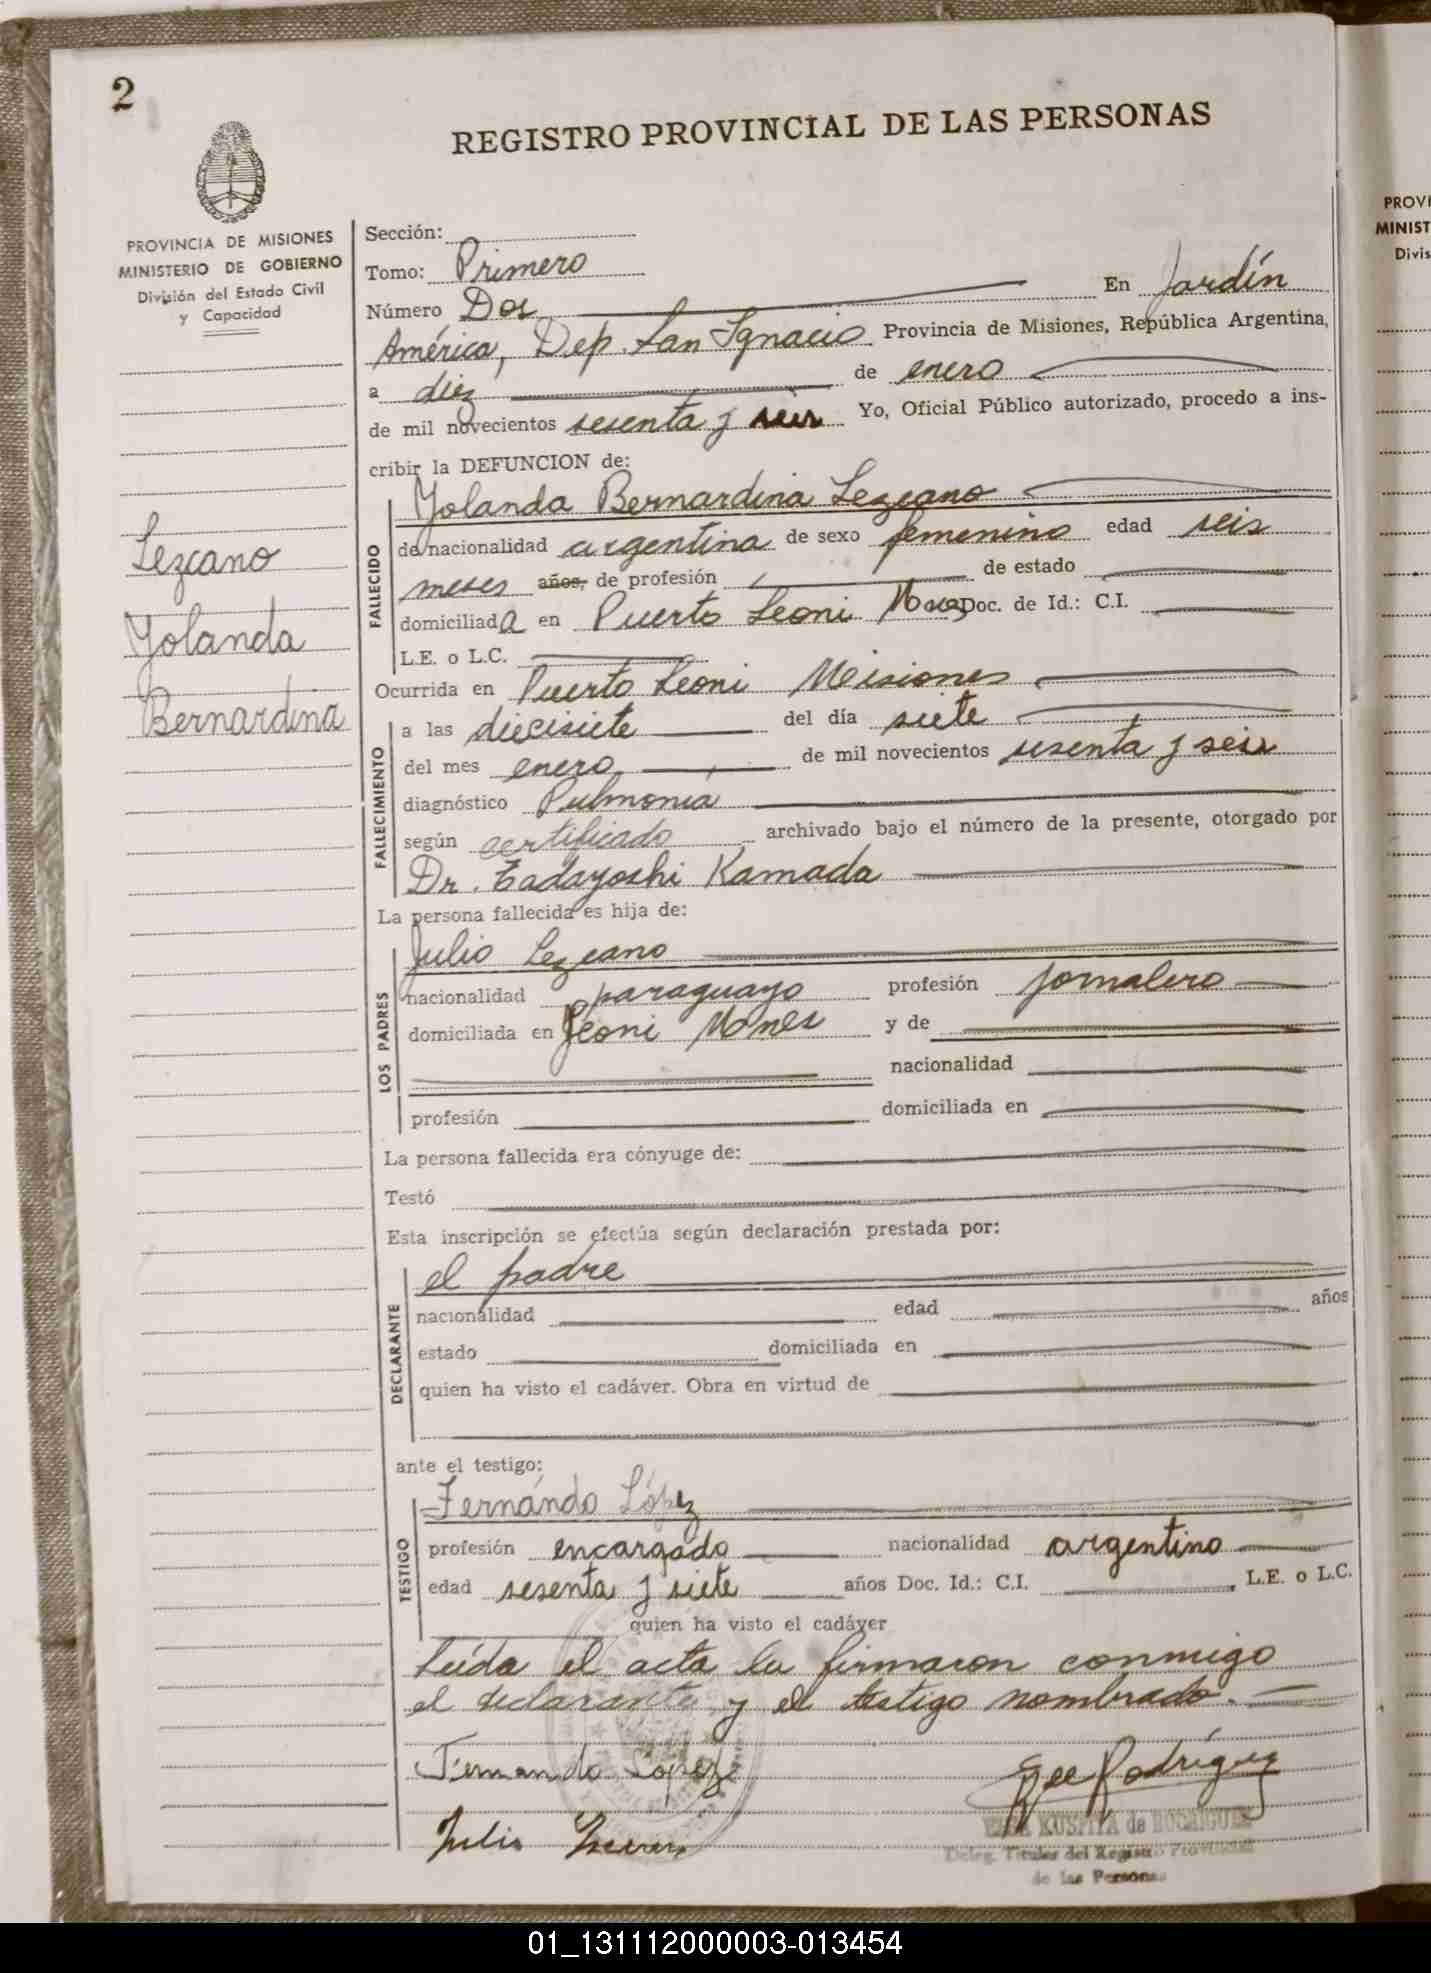 2
REGISTRO PROVINCIAL DE LAS PERSONAS
PROVINCIA DE MISIONES
MINISTERIO DE GOBIERNO
División del Estado Civil
y Capacidad
Lezcano
Yolanda
Bernardina
Sección:
Tomo: Primero
Número Dos En Jardín
América, Dep. San Ignacio Provincia de Misiones, República Argentina,
a diez de enero
de mil novecientos sesenta y seis Yo, Oficial Público autorizado, procedo a ins-
cribir la DEFUNCION de:
FALLECIDO
Yolanda Bernardina Lezcano
de nacionalidad argentina de sexo femenino edad seis
meses años, de profesión de estado
domiciliada en Puerto Leoni Doc. de Id.: C.I.
L.E. o L.C.
Ocurrida en Puerto Leoni Misiones
FALLECIMIENTO
a las diecisiete del día siete
del mes enero de mil novecientos sesenta y seis
diagnóstico Pulmonia
según certificado archivado bajo el número de la presente, otorgado por
Dr. Tadayoshi Kamada
La persona fallecida es hija de:
LOS PADRES
Julio Lezcano
nacionalidad paraguayo profesión jornalero
domiciliada en Leoni y de
nacionalidad
profesión domiciliada en
La persona fallecida era cónyuge de:
Testó
Esta inscripción se efectúa según declaración prestada por:
DECLARANTE
el padre
nacionalidad edad años
estado domiciliada en
quien ha visto el cadáver. Obra en virtud de
ante el testigo:
TESTIGO
Fernándo López
profesión encargado nacionalidad argentino
edad sesenta y siete años Doc. Id.: C.I. L.E. o L.C.
quien ha visto el cadáver
Leída el acta la firmaron conmigo
el declarante y el testigo nombrado.
Fernando Lopez Rodríguez
KUSPITA de RODRIGUEZ
Julio
Deleg. Titular del Registro Provincial
de las Personas
PROVI
MINIST
Divis
01_131112000003-013454